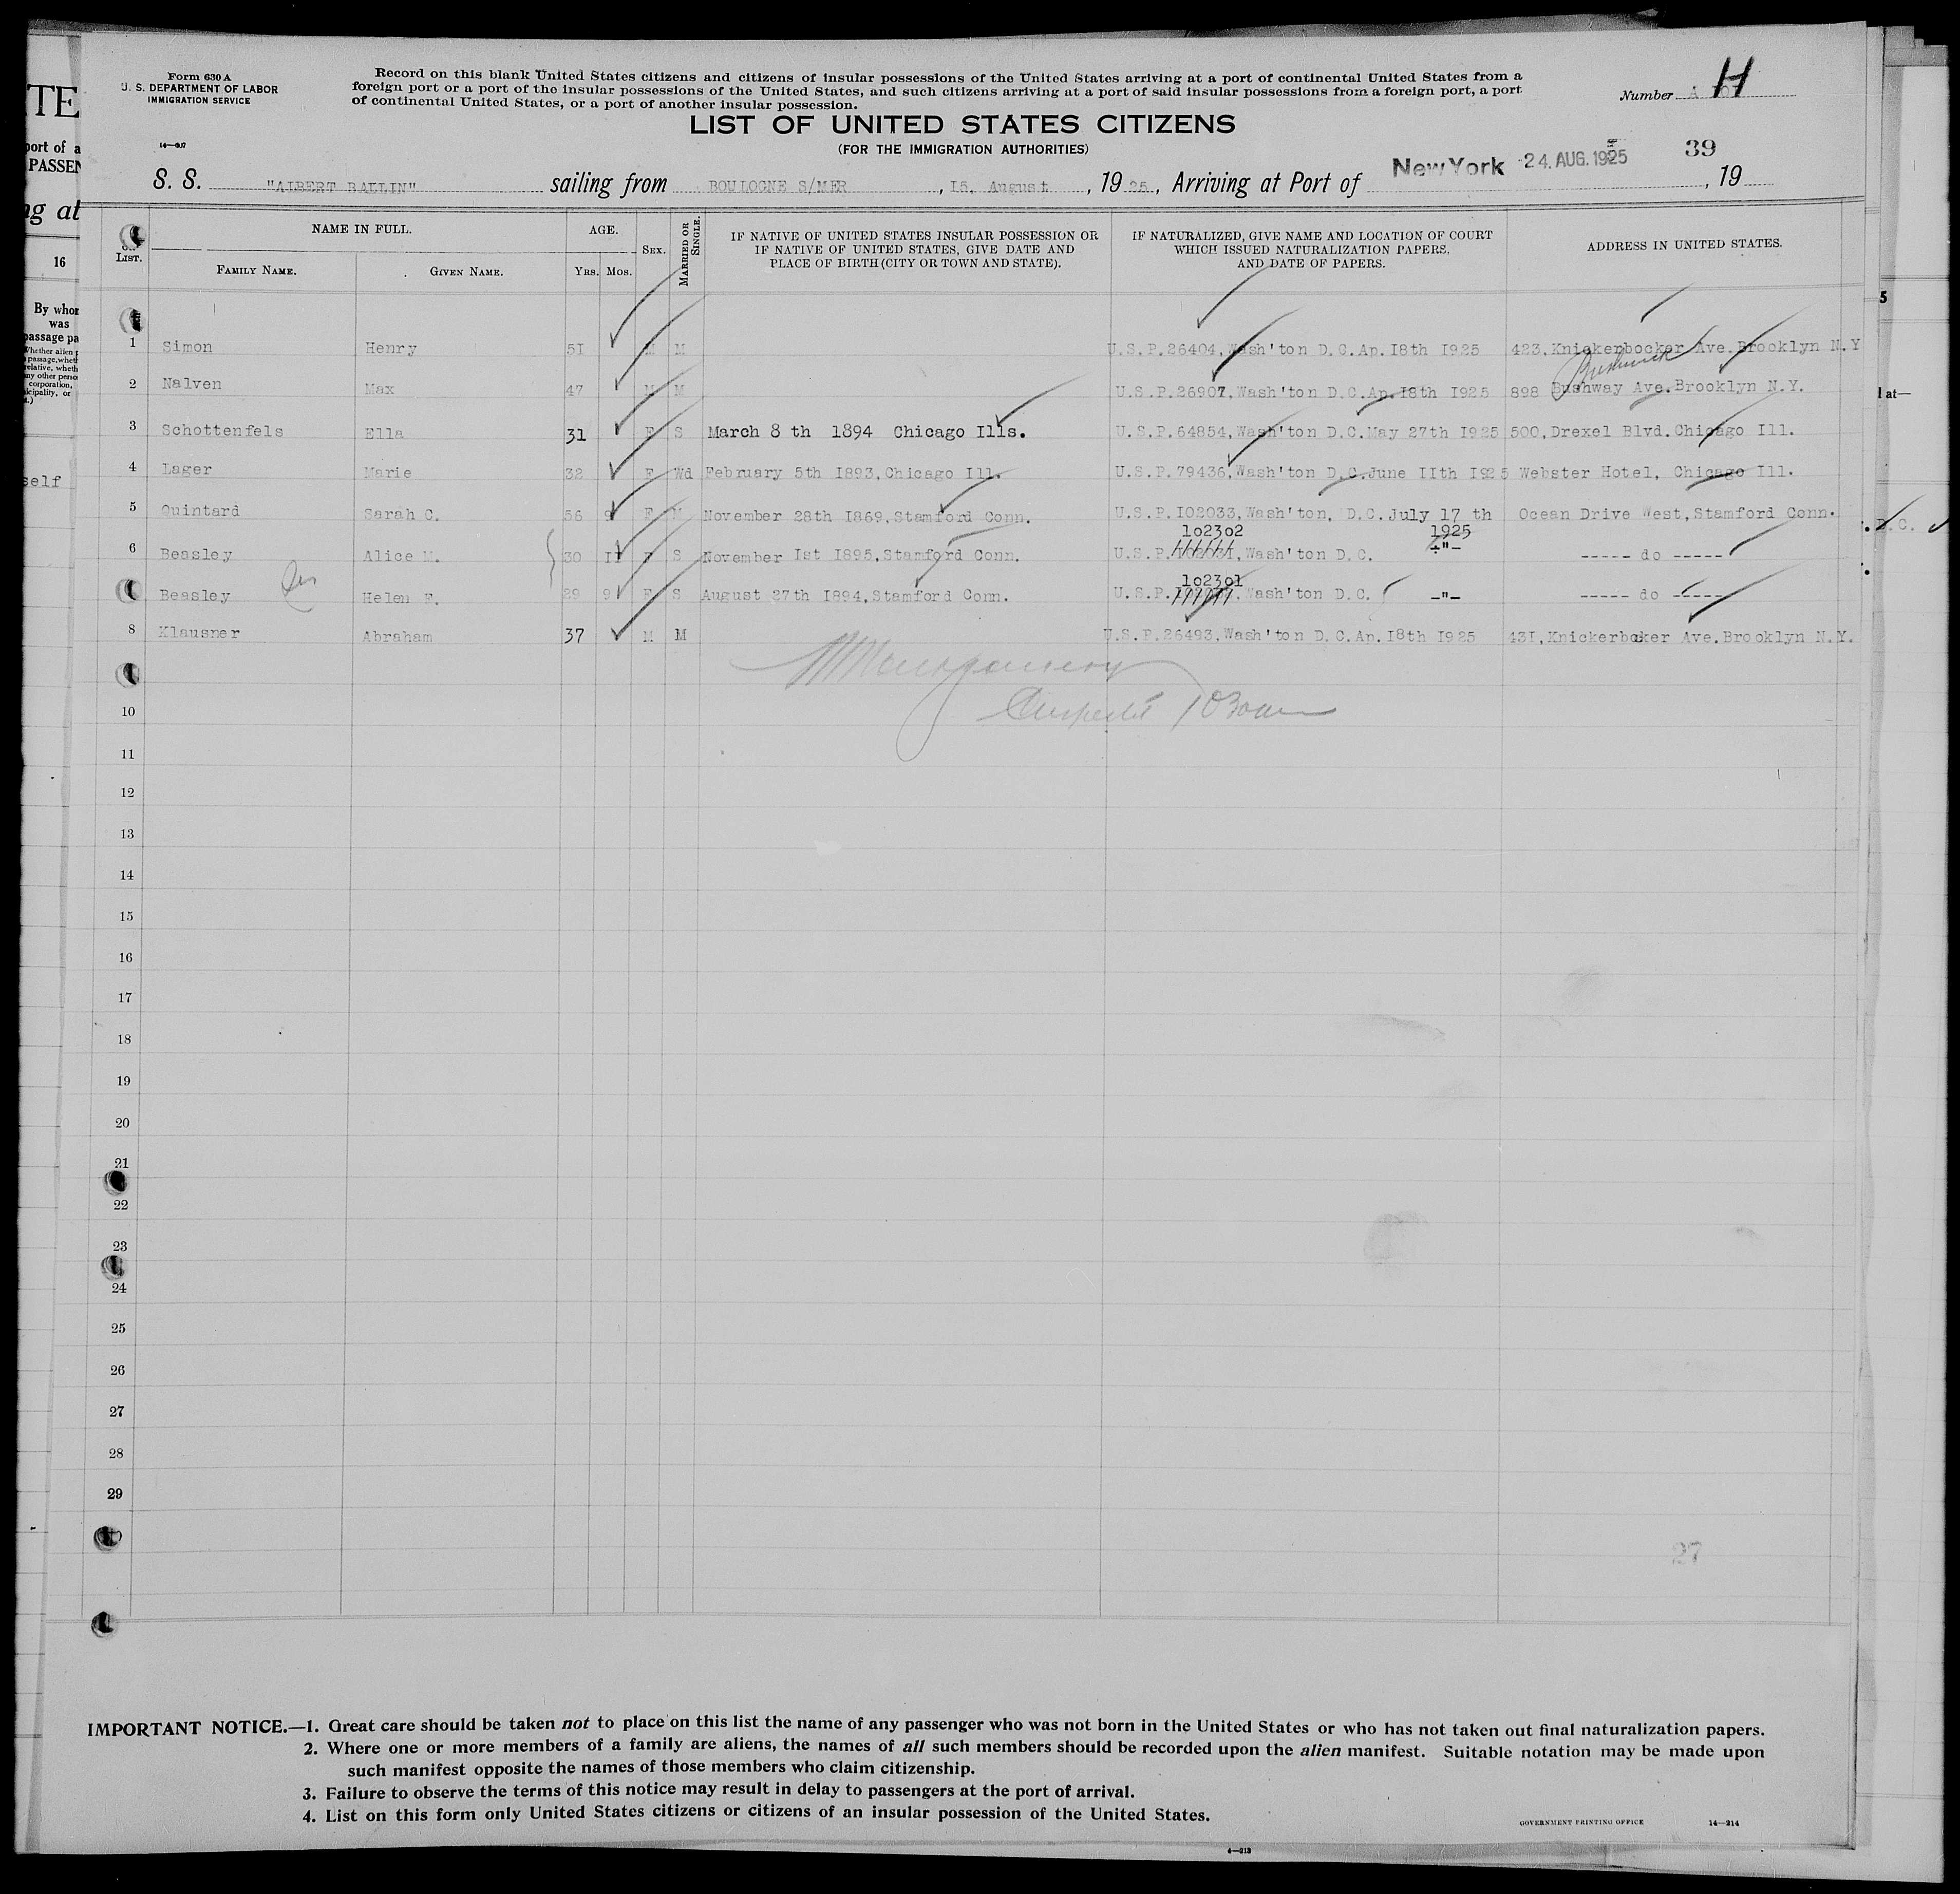 Form 630 A
U. S. DEPARTMENT OF LABOR
IMMIGRATION SERVICE
14—
Record on this blank United States citizens and citizens of insular possessions of the United States arriving at a port of continental United States from a
foreign port or a port of the insular possessions of the United States, and such citizens arriving at a port of said insular possessions from a foreign port, a port
of continental United States, or a port of another insular possession.
Number H
LIST OF UNITED STATES CITIZENS
(FOR THE IMMIGRATION AUTHORITIES)
39
S. S. "ALBERT BALLIN" sailing from BOULOGNE S/MER, 15, August, 1925, Arriving at Port of New York 24. AUG. 1925, 19
LIST.
NAME IN FULL.
FAMILY NAME. GIVEN NAME.
AGE.
YRS. MOS.
SEX.
MARRIED OR SINGLE.
IF NATIVE OF UNITED STATES INSULAR POSSESSION OR
IF NATIVE OF UNITED STATES, GIVE DATE AND
PLACE OF BIRTH (CITY OR TOWN AND STATE).
IF NATURALIZED, GIVE NAME AND LOCATION OF COURT
WHICH ISSUED NATURALIZATION PAPERS,
AND DATE OF PAPERS.
ADDRESS IN UNITED STATES.
1 Simon Henry 51 M M U.S.P.26404, Wash'ton D.C.Ap.18th 1925 423, Knickerbocker Ave. Brooklyn N.Y
Bushwick
2 Nalven Max 47 M M U.S.P.26907, Wash'ton D.C.Ap.18th 1925 898 Bushway Ave. Brooklyn N.Y.
3 Schottenfels Ella 31 F S March 8 th 1894 Chicago Ills. U.S.P.64854, Wash'ton D.C.May 27th 1925 500, Drexel Blvd. Chicago Ill.
4 Lager Marie 32 F Wd February 5th 1893, Chicago Ill. U.S.P.79436, Wash'ton D.C.June 11th 1925 Webster Hotel, Chicago Ill.
5 Quintard Sarah C. 56 9 F M November 28th 1869, Stamford Conn. U.S.P.102033, Wash'ton, D.C. July 17 th Ocean Drive West, Stamford Conn.
102302 1925
6 Beasley Alice M. 30 11 F S November 1st 1895, Stamford Conn. U.S.P. Wash'ton D.C. -"- ----- do -----
102301
Beasley Helen F. 29 9 F S August 27th 1894, Stamford Conn. U.S.P. Wash'ton D.C. -"- ----- do -----
8 Klausner Abraham 37 M M U.S.P.26493, Wash'ton D.C.Ap.18th 1925 431, Knickerbocker Ave. Brooklyn N.Y.
10
11
12
13
14
15
16
17
18
19
20
21
22
23
24
25
26
27
28
29
27
IMPORTANT NOTICE.—1. Great care should be taken not to place on this list the name of any passenger who was not born in the United States or who has not taken out final naturalization papers.
2. Where one or more members of a family are aliens, the names of all such members should be recorded upon the alien manifest. Suitable notation may be made upon
such manifest opposite the names of those members who claim citizenship.
3. Failure to observe the terms of this notice may result in delay to passengers at the port of arrival.
4. List on this form only United States citizens or citizens of an insular possession of the United States.
GOVERNMENT PRINTING OFFICE 14—214
TE
port of a
PASSEN
ng at
16
By whom
was
passage pa
self
5
at—
D.C.